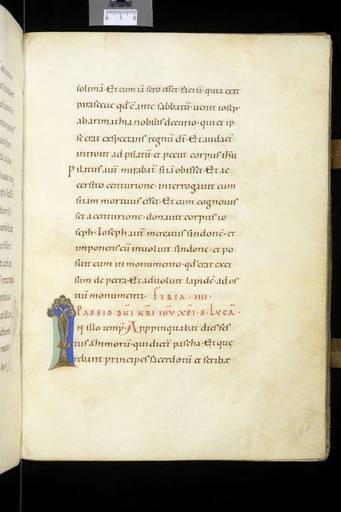 solimā· Et cum iā sero esset factū· quia erat
parasceue qđ ē ante sabbatū· uenit ioseph
ab arimathia nobilis decurio· qui et ip
se erat exspectans regnū dī· Et audacť
introiit ad pilatū· et petiit corpus ihū
Pilatus aut̄ mirabat̄ si iā obisset· Et ac
cersito centurione· interrogauit eum
si iam mortuus esset· Et cum cognouis
set a centurione· donauit corpus io
seph· Ioseph aut̄ mercatus sindonē· et
imponens eū inuoluit sindone· et po
suit eum in monumento· qđ erat exci
sum de petra· Et aduoluit lapidē· ad os
tiū monumenti· FERIA· IIII·
PASSIO DN̄I NR̄I IHŪ XP̄I· S· LUCĀ·
In illo temp̄· Appropinquabat dies fes
tus azimorū· qui dicit̄ pascha· Et que
rebant principes sacerdotū et scribæ